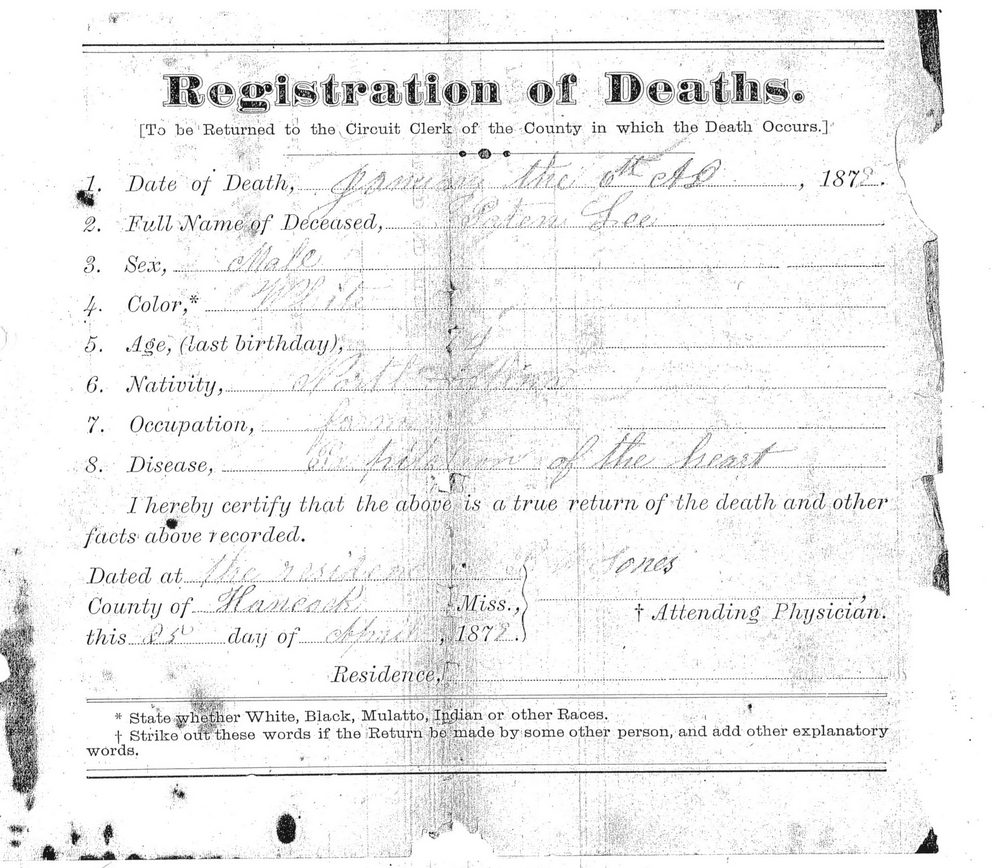 Registration of Deaths.
[To be Returned to the Circuit Clerk of the County in which the Death Occurs.]
1. Date of Death, January the 6th AD , 187 .
2. Full Name of Deceased, Lee
3. Sex, Male
4. Color,* White
5. Age, (last birthday), 74
6. Nativity, North
7. Occupation, farmer
8. Disease, of the heart
I hereby certify that the above is a true return of the death and other
facts above recorded.
Dated at the residence Jones
County of Hancock Miss.,
† Attending Physician.
this 25 day of April , 187 .
Residence,
* State whether White, Black, Mulatto, Indian or other Races.
† Strike out these words if the Return be made by some other person, and add other explanatory
words.